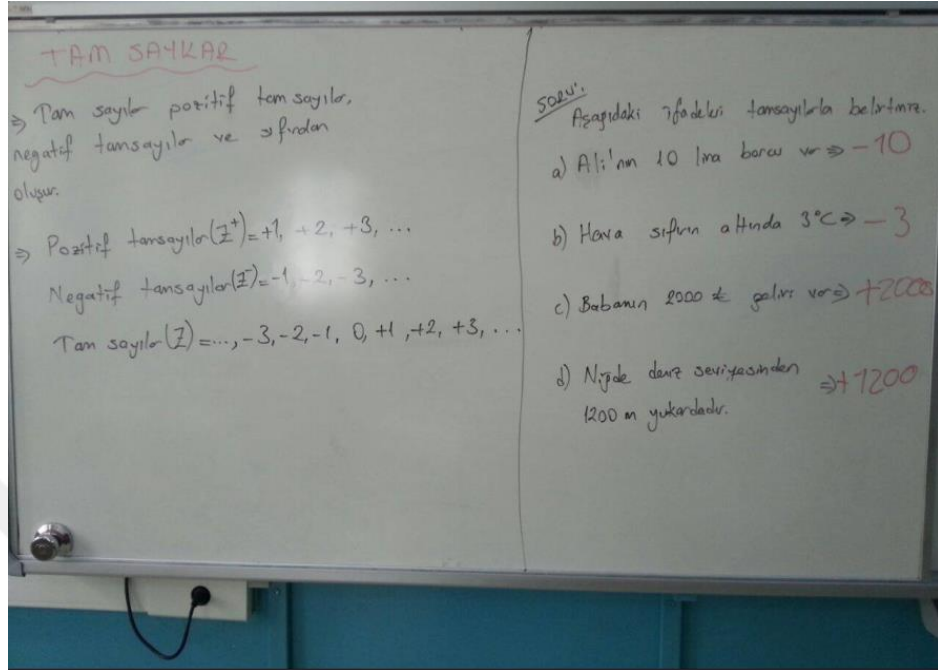 TAM SAYILAR
⇒ Tam sayılar pozitif tam sayılar,
negatif tamsayılar ve sıfırdan
oluşur.
⇒ Pozitif tamsayılar(Z⁺)=+1, +2, +3, ...
Negatif tamsayılar(Z⁻)=-1, -2, -3, ...
Tam sayılar(Z)=..., -3, -2, -1, 0, +1, +2, +3, ...
Soru:
Aşağıdaki ifadeleri tamsayılarla belirtiniz.
a) Ali'nin 10 lira borcu var ⇒ -10
b) Hava sıfırın altında 3°C ⇒ -3
c) Babanın 2000 ₺ geliri var ⇒ +2000
d) Niğde deniz seviyesinden
1200 m yukardadır. ⇒ +1200